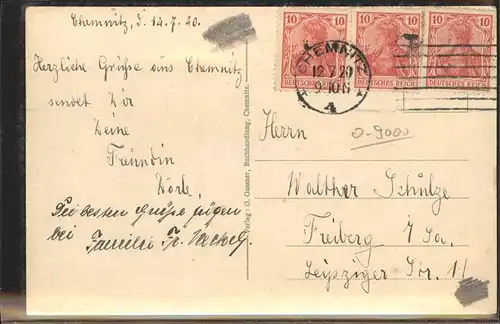 Chemnitz, d. 12.7.20.
Herzliche Grüße aus Chemnitz
sendet Dir
Deine
Freundin
Die besten Grüße fügen
bei Familie Fr.
Verlag: O. Gessner, Buchhandlung, Chemnitz.
10 10 10 10 10 10
DEUTSCHES REICH DEUTSCHES REICH DEUTSCHES REICH
CHEMNITZ
12.7.20
9-10
4
Herrn
0-9000
Walther Schulze
Freiberg i/Sa.
Leipziger Str. 11